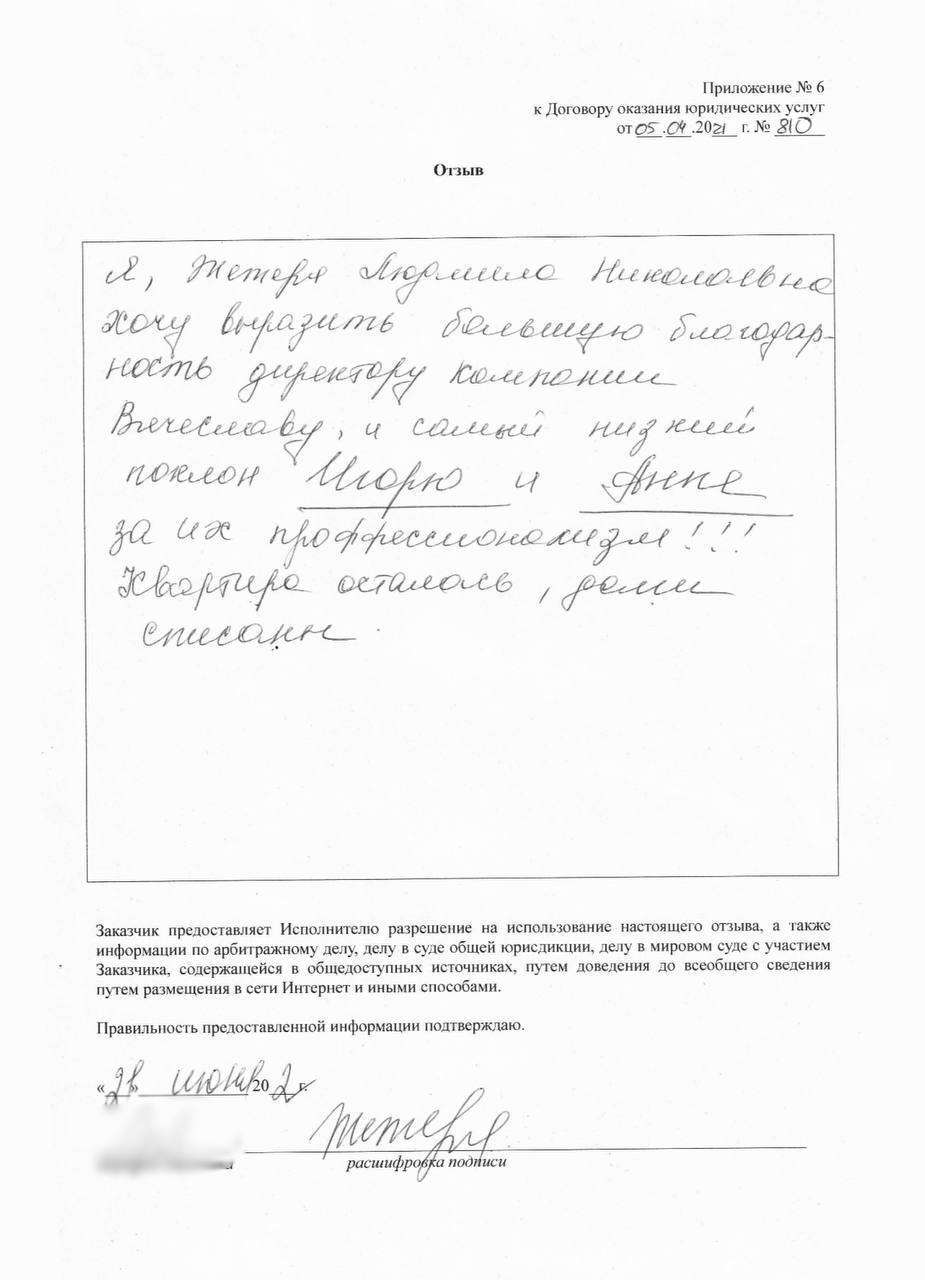 Приложение № 6
к Договору оказания юридических услуг
от 05.04.2021 г. № 810
Отзыв
Я, Жетеря Людмила Николаевна
хочу выразить большую благодар-
ность директору компании
Вячеславу, и самый низкий
поклон Игорю и Анне
за их проффессионализм!!!
Квартира осталась, доли
списаны.
Заказчик предоставляет Исполнителю разрешение на использование настоящего отзыва, а также
информации по арбитражному делу, делу в суде общей юрисдикции, делу в мировом суде с участием
Заказчика, содержащейся в общедоступных источниках, путем доведения до всеобщего сведения
путем размещения в сети Интернет и иными способами.
Правильность предоставленной информации подтверждаю.
« » июня 20 г.
Жетеря
расшифровка подписи